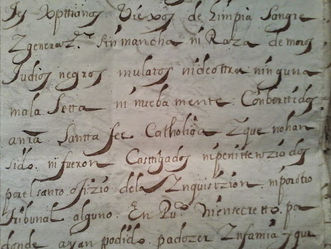 Xpttianos Viexos de limpia Sangre
Zgenerazn. Sin mancha ni Raza de moros
Judios negros mulatos nideottra ninguna
mala Setta ni nueba mente Conbertidos
anra. Santta fee Catholica Zque nohan
sido ni fueron Casttigados nipenittenziados
porelsanto ofizio dela Inquisizion niporotro
tribunal alguno. En Puco. niensecretto, por
donde ayan podido padezer Infamia, y que